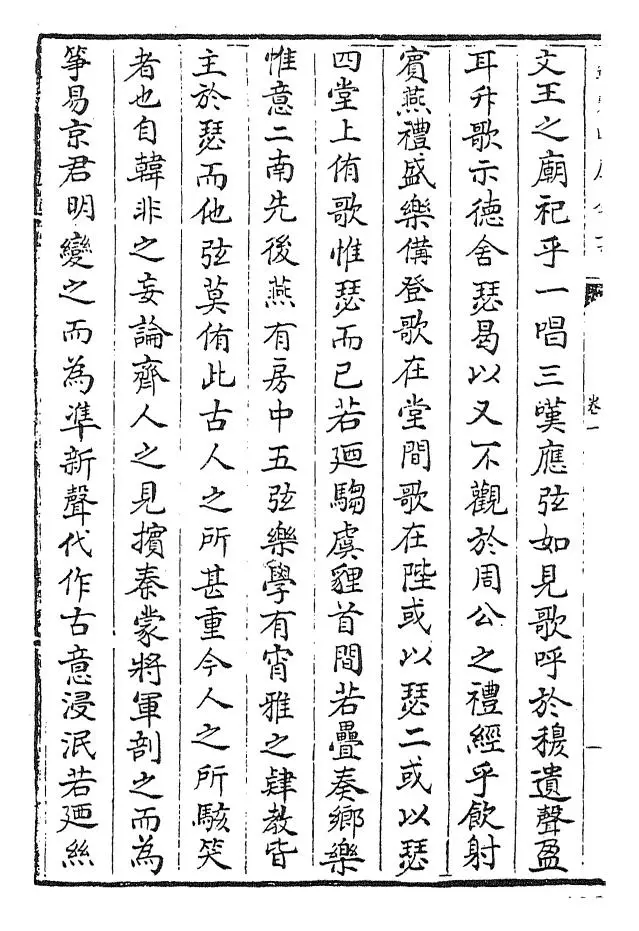 文王之廟祀乎一唱三嘆應弦如見歌呼於穆遺聲盈
耳升歌示德舍瑟曷以又不觀於周公之禮經乎飲射
賓燕禮盛樂備登歌在堂間歌在陛或以瑟二或以瑟
四堂上侑歌惟瑟而已若廼騶虞貍首間若疊奏鄉樂
惟意二南先後燕有房中五弦樂學有宵雅之肄教皆
主於瑟而他弦莫侑此古人之所甚重今人之所駭笑
者也自韓非之妄論齊人之見擯秦蒙將軍剖之而為
箏易京君明變之而為準新聲代作古意浸泯若廼絲
卷一